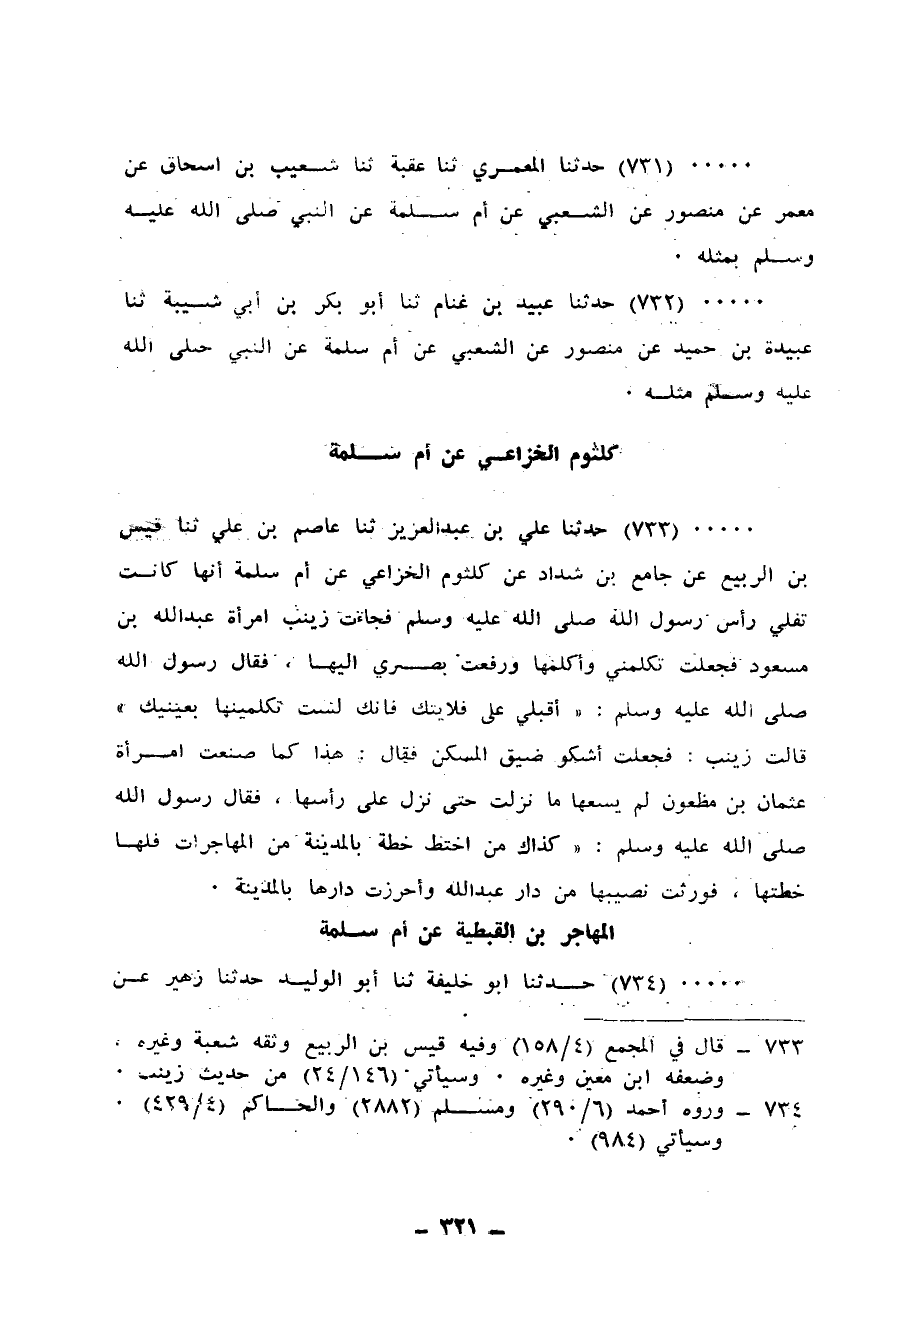 ..... (٧٣١) حدثنا المعمـري ثنا عقبة ثنا شـعيب بن اسحاق عن
معمر عن منصور عن الشـعبي عن أم سـلمة عن النبي صلى الله عليـه
وسـلم بمثله .
..... (٧٣٢) حدثنا عبيد بن غنام ثنا أبو بكر بن أبي شـيبة ثنا
عبيدة بن حميد عن منصور عن الشعبي عن أم سلمة عن النبي صلى الله
عليه وسـلم مثلـه .
كلثوم الخزاعـي عن أم سـلمة
..... (٧٣٣) حدثنا علي بن عبدالعزيز ثنا عاصم بن علي ثنا قيس
بن الربيع عن جامع بن شداد عن كلثوم الخزاعي عن أم سلمة أنها كانـت
تفلي رأس رسول الله صلى الله عليه وسلم فجاءت زينب امرأة عبدالله بن
مسعود فجعلت تكلمني وأكلمها ورفعت بصـري اليهـا ، فقال رسول الله
صلى الله عليه وسلم : « أقبلي على فلايتك فانك لست تكلمينها بعينيك »
قالت زينب : فجعلت أشكو ضيق المسكن فقال : هذا كما صنعت امـرأة
عثمان بن مظعون لم يسعها ما نزلت حتى نزل على رأسها ، فقال رسول الله
صلى الله عليه وسلم : « كذاك من اختط خطة بالمدينة من المهاجرات فلهـا
خطتها ، فورثت نصيبها من دار عبدالله وأحرزت دارها بالمدينة .
المهاجر بن القبطية عن أم سـلمة
..... (٧٣٤) حـدثنا ابو خليفة ثنا أبو الوليـد حدثنا زهير عـن
٧٣٣ ـ قال في المجمع (١٥٨/٤) وفيه قيس بن الربيع وثقه شعبة وغيره ،
وضعفه ابن معين وغيره . وسيأتي (٢٤/١٤٦) من حديث زينب .
٧٣٤ ـ وروه أحمد (٢٩٠/٦) ومسـلم (٢٨٨٢) والحـاكم (٤٢٩/٤) .
وسيأتي (٩٨٤) .
ـ ٣٢١ ـ